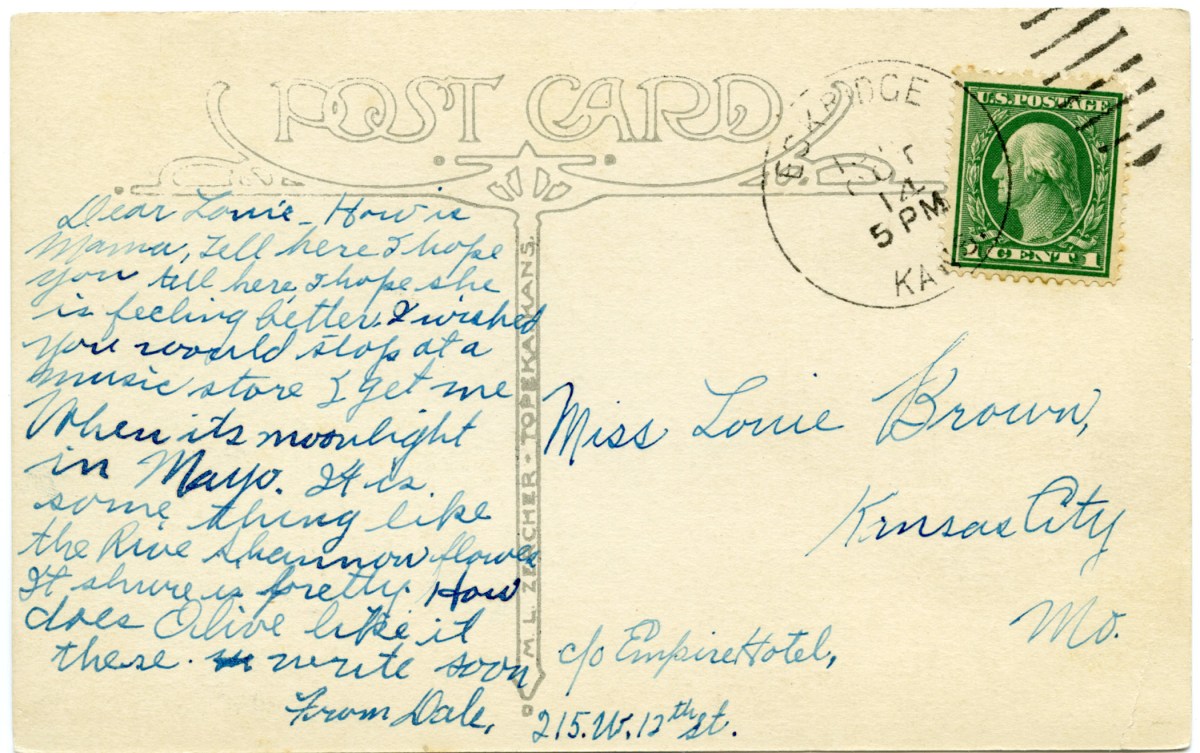 POST CARD
ESKRIDGE
14
5 PM
KANS
U.S. POSTAGE
1 CENT 1
Dear Lonie - How is
Mama, Tell here I hope
you tell here I hope she
is feeling better. I wished
you would stop at a
music store & get me
When its moonlight
in Mayo. It is
some thing like
the Rive Shannon flows
It shure is pretty. How
does Olive like it
there. write soon
From Dale,
M. L. ZERCHER - TOPEKA, KANS.
Miss Lonie Brown,
Kansas City
Mo.
c/o Empire Hotel,
215. W. 12th St.